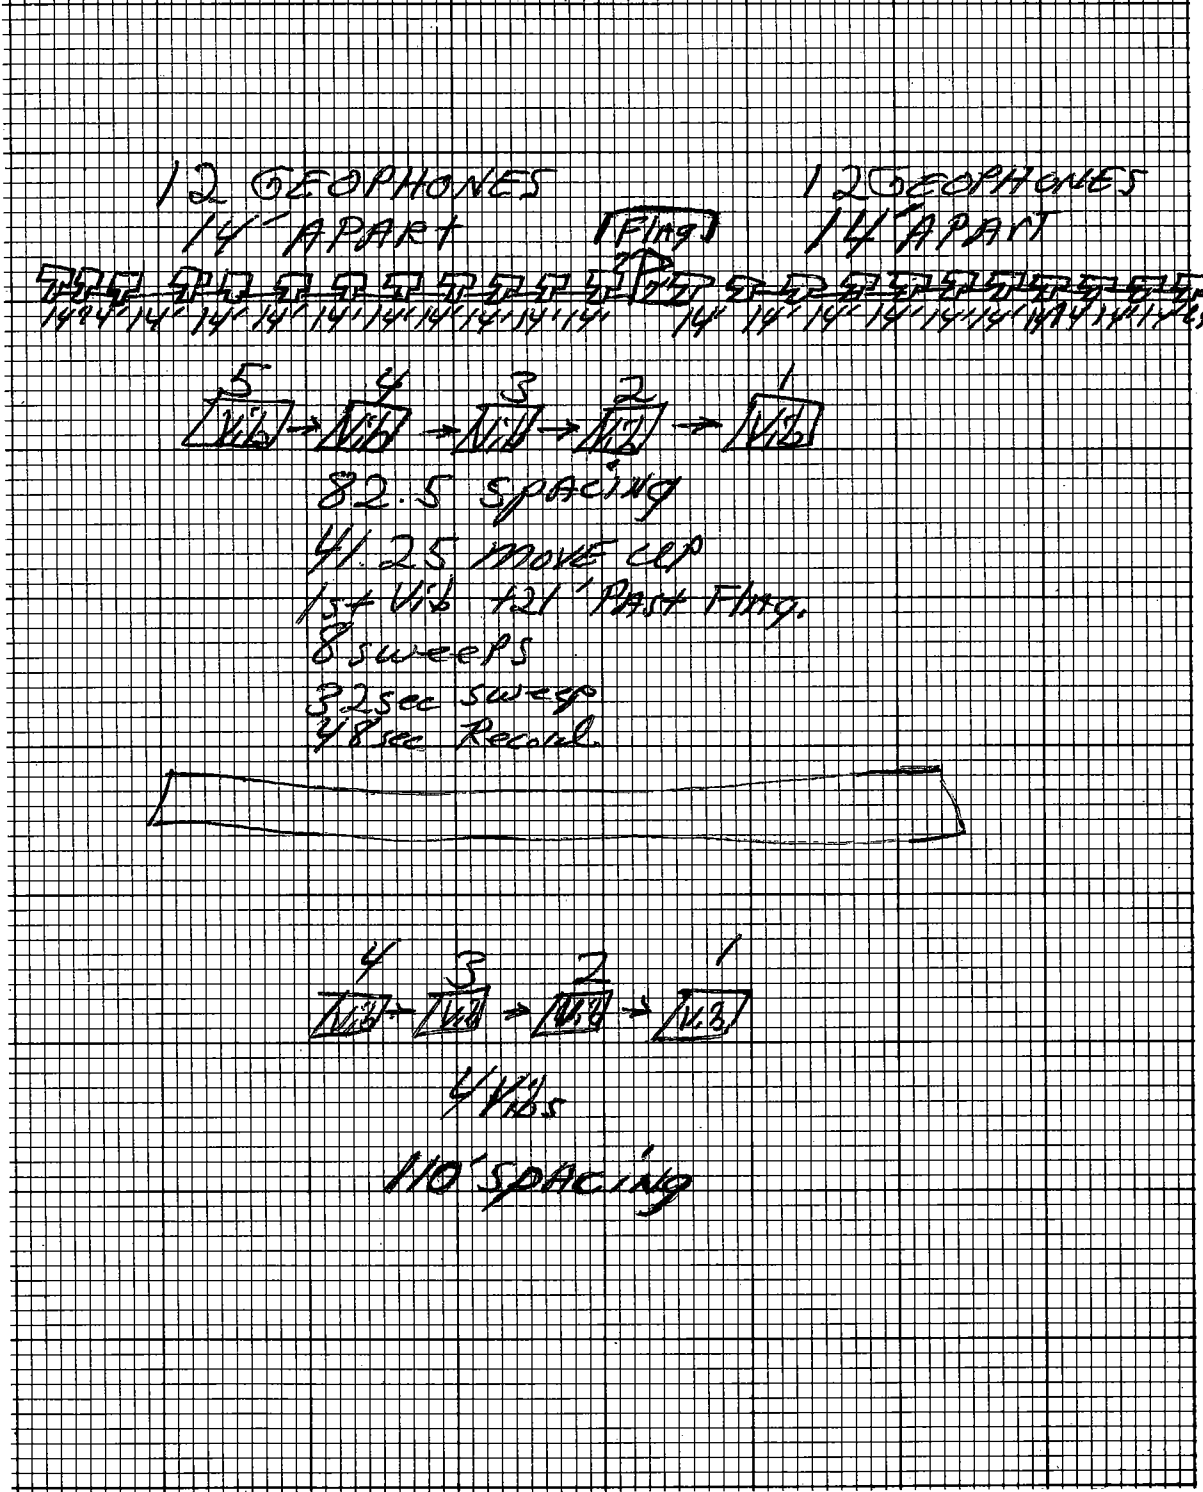 12 GEOPHONES 12 GEOPHONES
14' APART Flag 14' APArT
14' 14' 14' 14' 14' 14' 14' 14' 14' 14' 14' 14' 14' 14' 14' 14' 14' 14' 14' 14' 14'
5 4 3 2 1
Vib Vib Vib Vib Vib
82.5 SPACiNg
41.25 MOVE UP
1st Vib +21' PASt FlAg.
8 sweePs
32sec sweep
48 sec Record.
4 3 2 1
Vib Vib Vib Vib
4 Vibs
110' SPACiNg